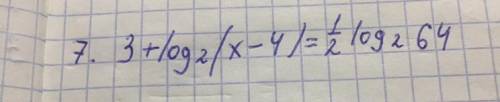 7. 3+log₂(x-4)=½ log₂ 64